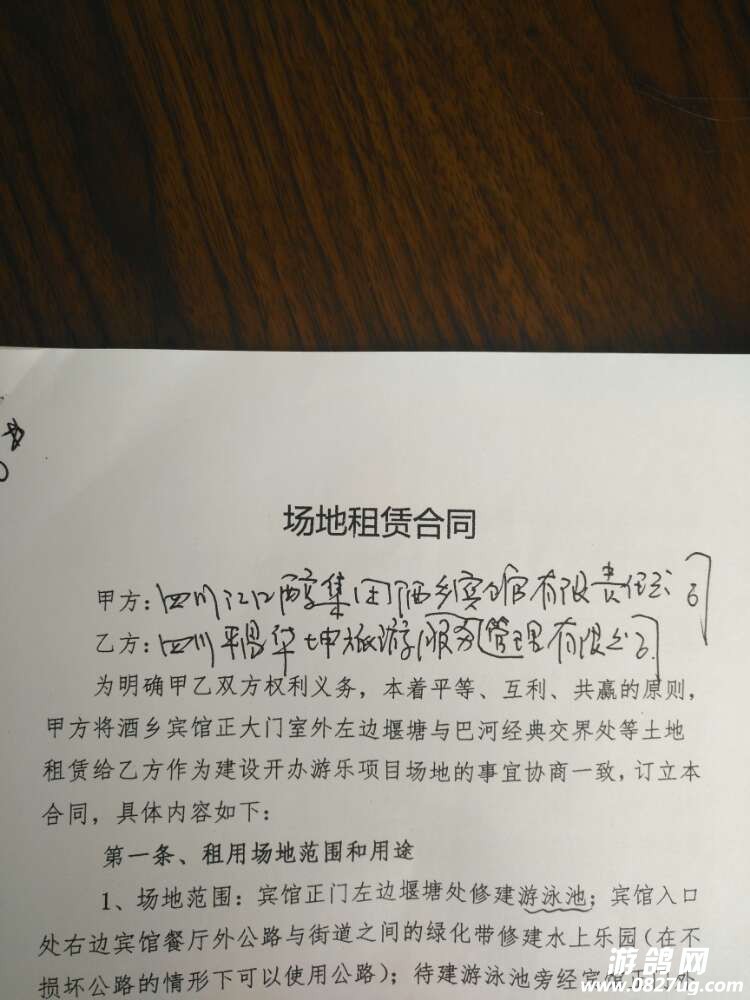 场地租赁合同
甲方:四川江口醇集团酒乡宾馆有限责任公司
乙方:四川平昌华坤旅游服务管理有限公司
为明确甲乙双方权利义务，本着平等、互利、共赢的原则，
甲方将酒乡宾馆正大门室外左边堰塘与巴河经典交界处等土地
租赁给乙方作为建设开办游乐项目场地的事宜协商一致，订立本
合同，具体内容如下：
第一条、租用场地范围和用途
1、场地范围：宾馆正门左边堰塘处修建游泳池；宾馆入口
处右边宾馆餐厅外公路与街道之间的绿化带修建水上乐园（在不
损坏公路的情形下可以使用公路）；待建游泳池旁经宾馆正门外
游鸽网
www.0827ug.com